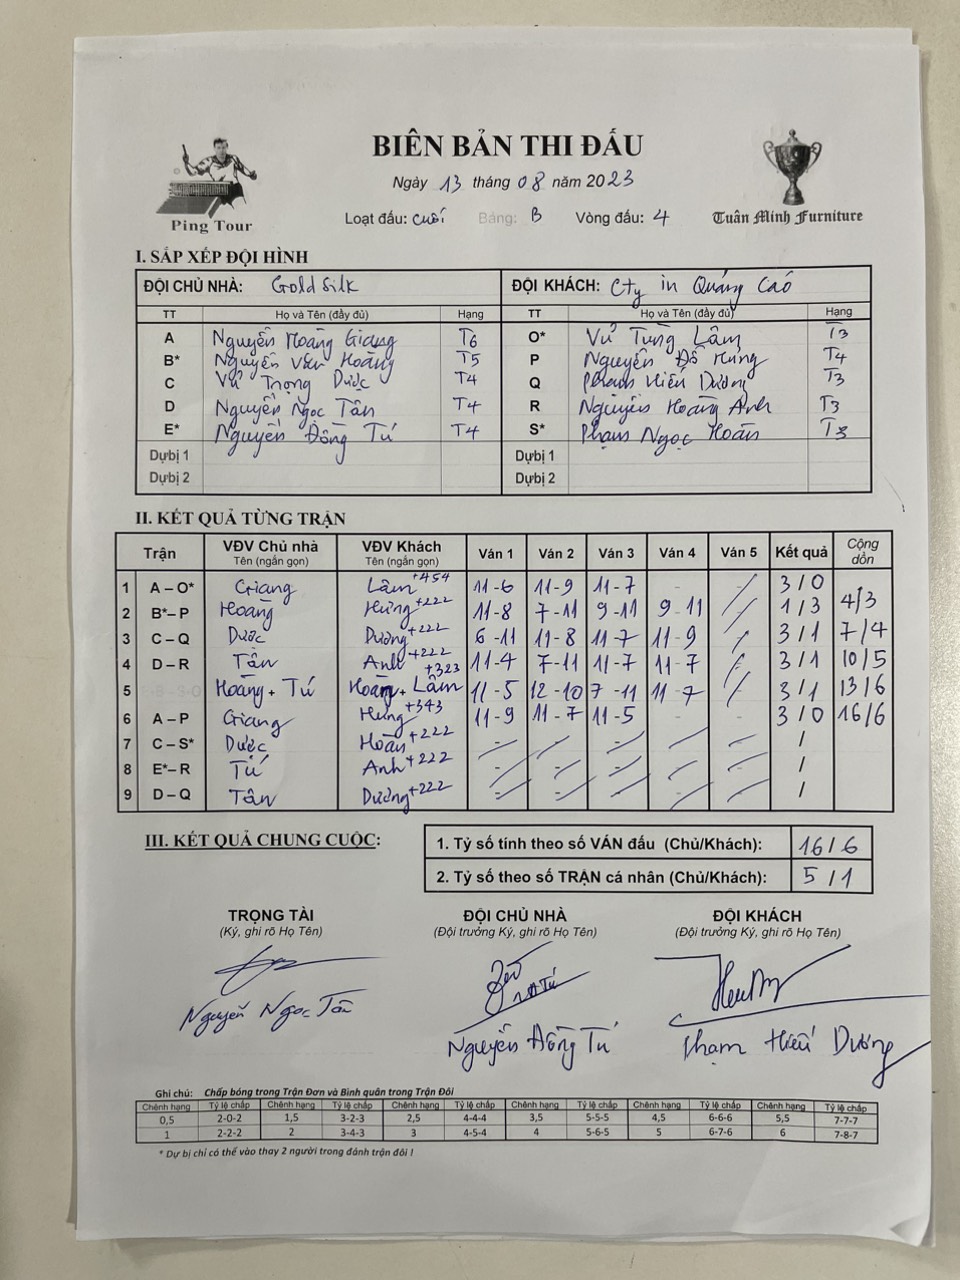 BIÊN BẢN THI ĐẤU
Ngày 13 tháng 08 năm 2023
Ping Tour
Loạt đấu: cuối Bảng: B Vòng đấu: 4
Tuân Minh Furniture
I. SẮP XẾP ĐỘI HÌNH
ĐỘI CHỦ NHÀ: Gold Silk ĐỘI KHÁCH: Cty in Quảng Cáo
TT Họ và Tên (đầy đủ) Hạng TT Họ và Tên (đầy đủ) Hạng
A Nguyễn Hoàng Giang T6 O* Vũ Tùng Lâm T3
B* Nguyễn Văn Hoàng T5 P Nguyễn Đỗ Hưng T4
C Vũ Trọng Dược T4 Q Phạm Hiếu Dương T3
D Nguyễn Ngọc Tân T4 R Nguyễn Hoàng Anh T3
E* Nguyễn Đồng Tú T4 S* Phạm Ngọc Hoàn T3
Dựbị 1 Dựbị 1
Dựbị 2 Dựbị 2
II. KẾT QUẢ TỪNG TRẬN
Trận VĐV Chủ nhà VĐV Khách Ván 1 Ván 2 Ván 3 Ván 4 Ván 5 Kết quả Cộng dồn
Tên (ngắn gọn) Tên (ngắn gọn)
1 A – O* Giang Lâm +454 11-6 11-9 11-7 - - 3/0
2 B* – P Hoàng Hưng +222 11-8 7-11 9-11 9-11 1/3 4/3
3 C – Q Dược Dương +222 6-11 11-8 11-7 11-9 3/1 7/4
4 D – R Tân Anh +222 11-4 7-11 11-7 11-7 3/1 10/5
5 Hoàng + Tú Hoàn + Lâm +323 11-5 12-10 7-11 11-7 3/1 13/6
6 A – P Giang Hưng +343 11-9 11-7 11-5 - - 3/0 16/6
7 C – S* Dược Hoàn +222 /
8 E* – R Tú Anh +222 /
9 D – Q Tân Dương +222 /
III. KẾT QUẢ CHUNG CUỘC:
1. Tỷ số tính theo số VÁN đấu (Chủ/Khách): 16/6
2. Tỷ số theo số TRẬN cá nhân (Chủ/Khách): 5/1
TRỌNG TÀI ĐỘI CHỦ NHÀ ĐỘI KHÁCH
(Ký, ghi rõ Họ Tên) (Đội trưởng Ký, ghi rõ Họ Tên) (Đội trưởng Ký, ghi rõ Họ Tên)
Nguyễn Ngọc Tân Nguyễn Đồng Tú Phạm Hiếu Dương
Ghi chú: Chấp bóng trong Trận Đơn và Bình quân trong Trận Đôi
Chênh hạng Tỷ lệ chấp Chênh hạng Tỷ lệ chấp Chênh hạng Tỷ lệ chấp Chênh hạng Tỷ lệ chấp Chênh hạng Tỷ lệ chấp Chênh hạng Tỷ lệ chấp
0,5 2-0-2 1,5 3-2-3 2,5 4-4-4 3,5 5-5-5 4,5 6-6-6 5,5 7-7-7
1 2-2-2 2 3-4-3 3 4-5-4 4 5-6-5 5 6-7-6 6 7-8-7
* Dự bị chỉ có thể vào thay 2 người trong đánh trận đôi !